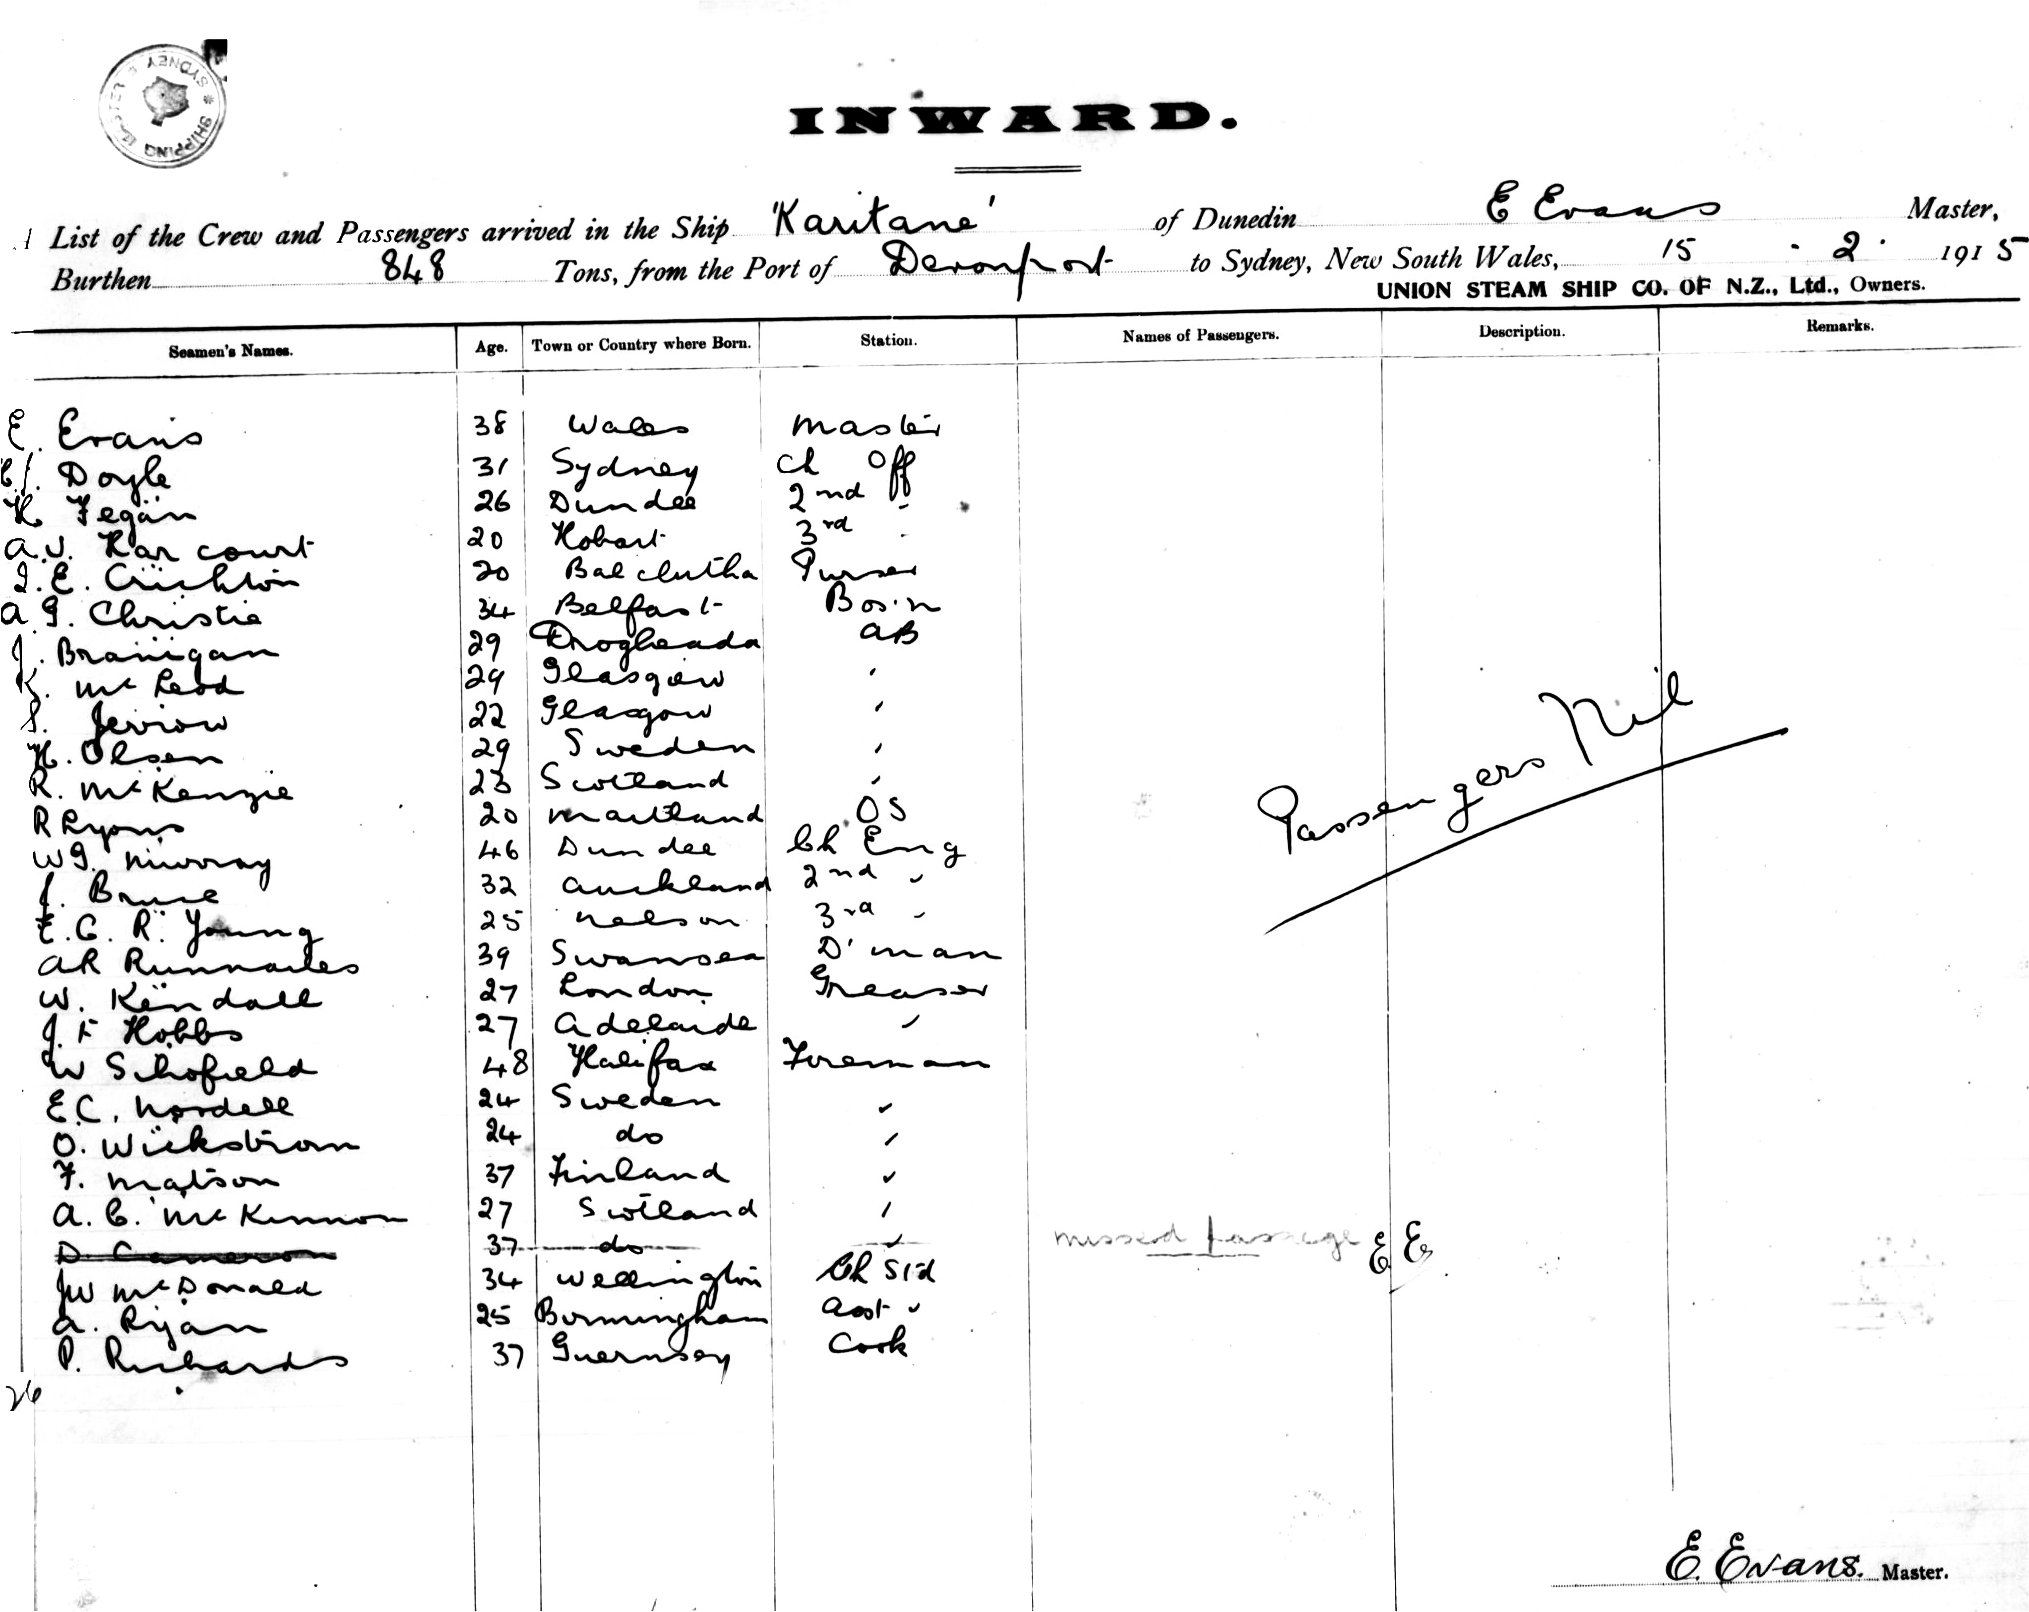 SYDNEY SHIPPING
INWARD.
List of the Crew and Passengers arrived in the Ship 'Karitane' of Dunedin E Evans Master,
Burthen 848 Tons, from the Port of Devonport to Sydney, New South Wales, 15 - 2 - 1915
UNION STEAM SHIP CO. OF N.Z., Ltd., Owners.
Seamen's Names. Age. Town or Country where Born. Station. Names of Passengers. Description. Remarks.
E. Evans 38 Wales Master
Doyle 31 Sydney Ch Off
H Fegan 26 Dundee 2nd "
A.V. Harcourt 20 Hobart 3rd "
E. Crichton 20 Balclutha Purser
A.G. Christie 34 Belfast Bos'n
J. Branigan 29 Drogheada AB
K. McLeod 29 Glasgow "
S. Jerrow 22 Glasgow "
H. Olsen 29 Sweden "
R. McKenzie 23 Scotland "
R Lyons 20 Maitland OS
W.G. Murray 46 Dundee Ch Eng
J. Bruce 32 Auckland 2nd "
E.G.R. Young 25 Nelson 3rd "
AR Runnacles 39 Swansea D'man
W. Kendall 27 London Greaser
J.F Hobbs 27 Adelaide "
W Schofield 48 Halifax Fireman
E.C. Nordell 24 Sweden "
O. Wickstrom 24 do "
F. Matson 37 Finland "
A.C. McKinnon 27 Scotland "
D. Cameron 37 do " missed passage E E
JW McDonald 34 Wellington Ch Std
A. Ryan 25 Birmingham Asst "
P. Richards 37 Guernsey Cook
26
Passengers Nil
E. Evans. Master.